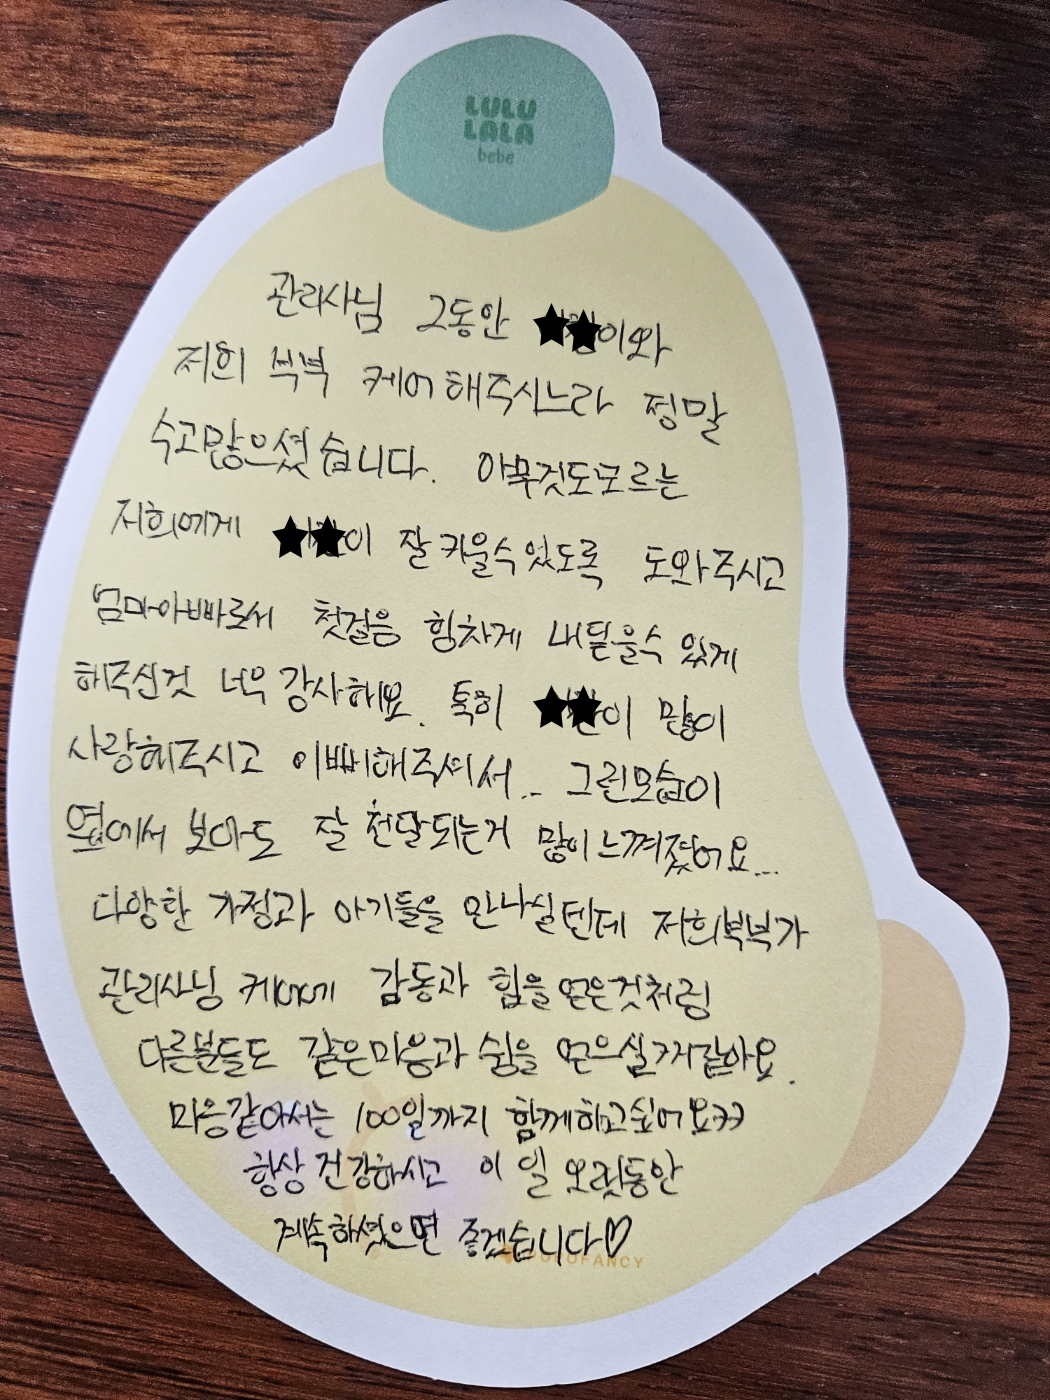 LULU
LALA
bebe
관리사님 그동안 이와
저희 부부 케어해주시느라 정말
수고많으셨습니다. 아무것도모르는
저희에게 이 잘키울수있도록 도와주시고
엄마아빠로서 첫걸음 힘차게 내딛을수 있게
해주신것 너무 감사해요. 특히 이 많이
사랑해주시고 이뻐해주셔서... 그런모습이
옆에서 보아도 잘 전달되는거 많이느껴졌어요...
다양한 가정과 아기들을 만나실텐데 저희부부가
관리사님 케어에 감동과 힘을 얻은것처럼
다른분들도 같은마음과 쉼을 얻으실거같아요.
마음같아서는 100일까지 함께하고싶어요ㅋㅋ
항상 건강하시고 이 일 오랫동안
계속하셨으면 좋겠습니다♡